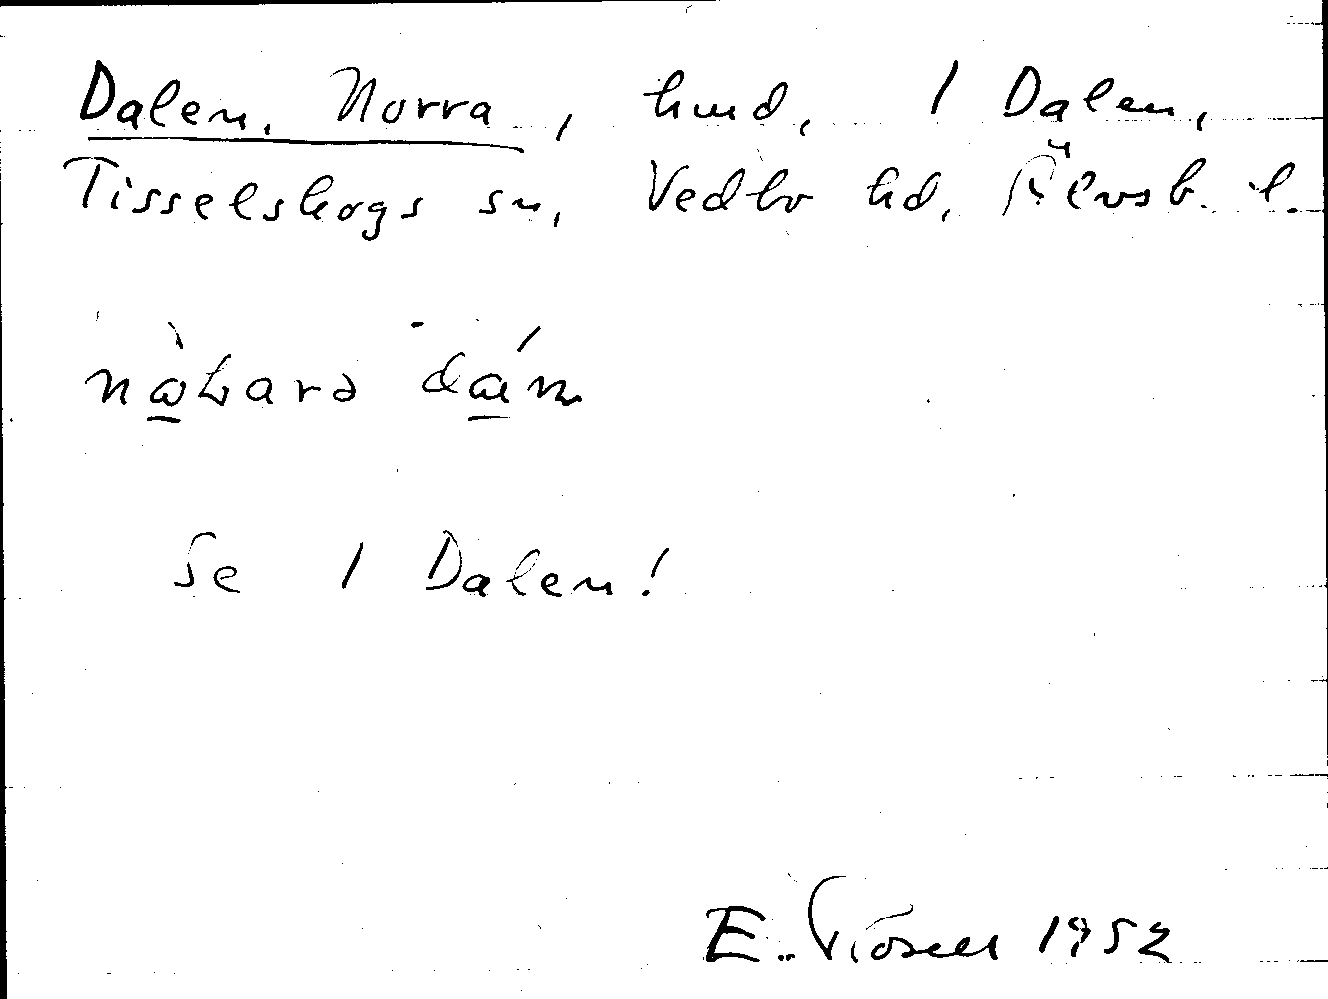 Dalen, Norra, hmd, 1 Dalen,
Tisselskogs sn, Vedbo hd, Älvsb. l.
Se 1 Dalen!
E. 1952